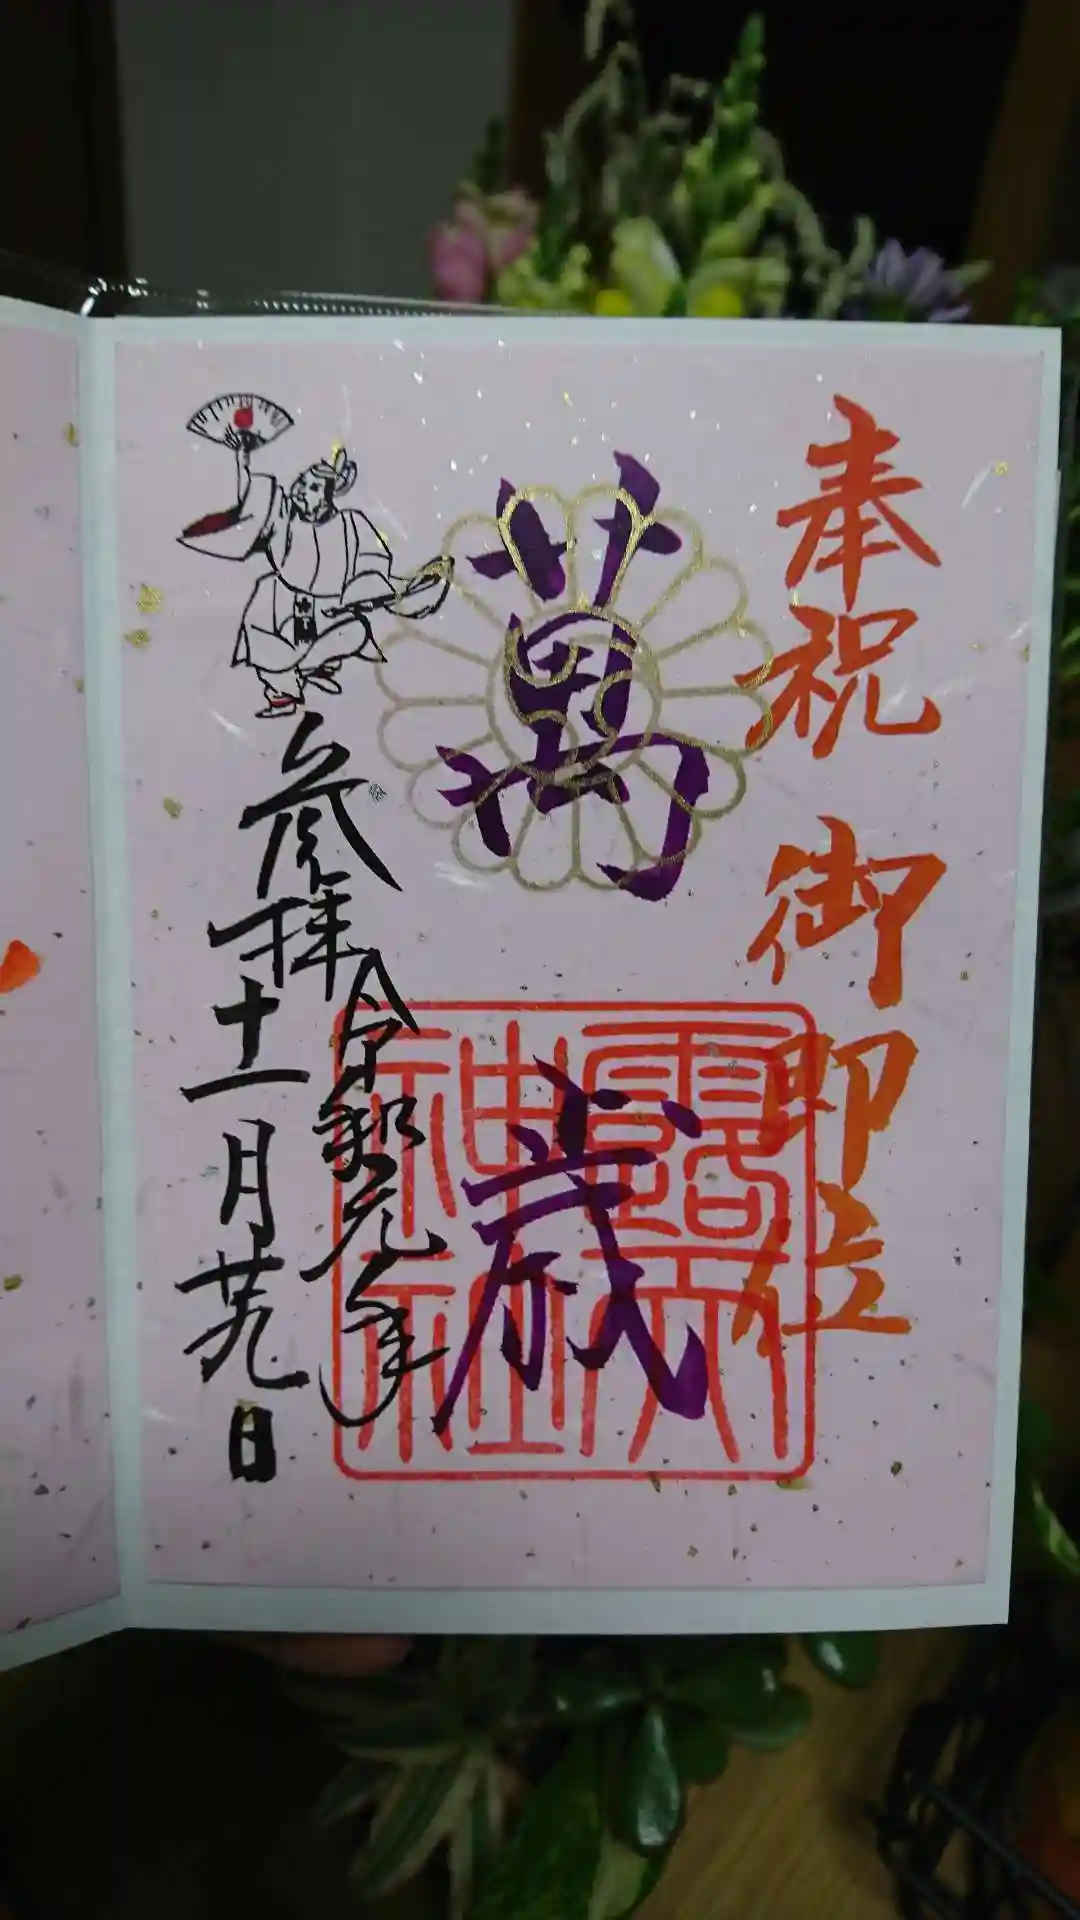 奉祝 御即位
萬歳
露天神社
令和元年
参拝十一月廿九日